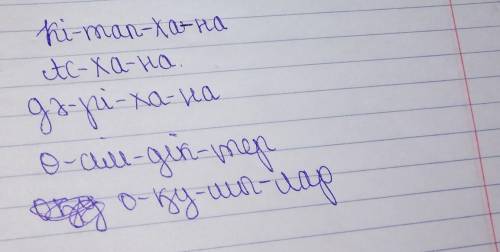 кі-тап-ха-на
Ас-ха-на.
дә-рі-ха-на
о-сім-дік-тер
о-қу-шы-лар